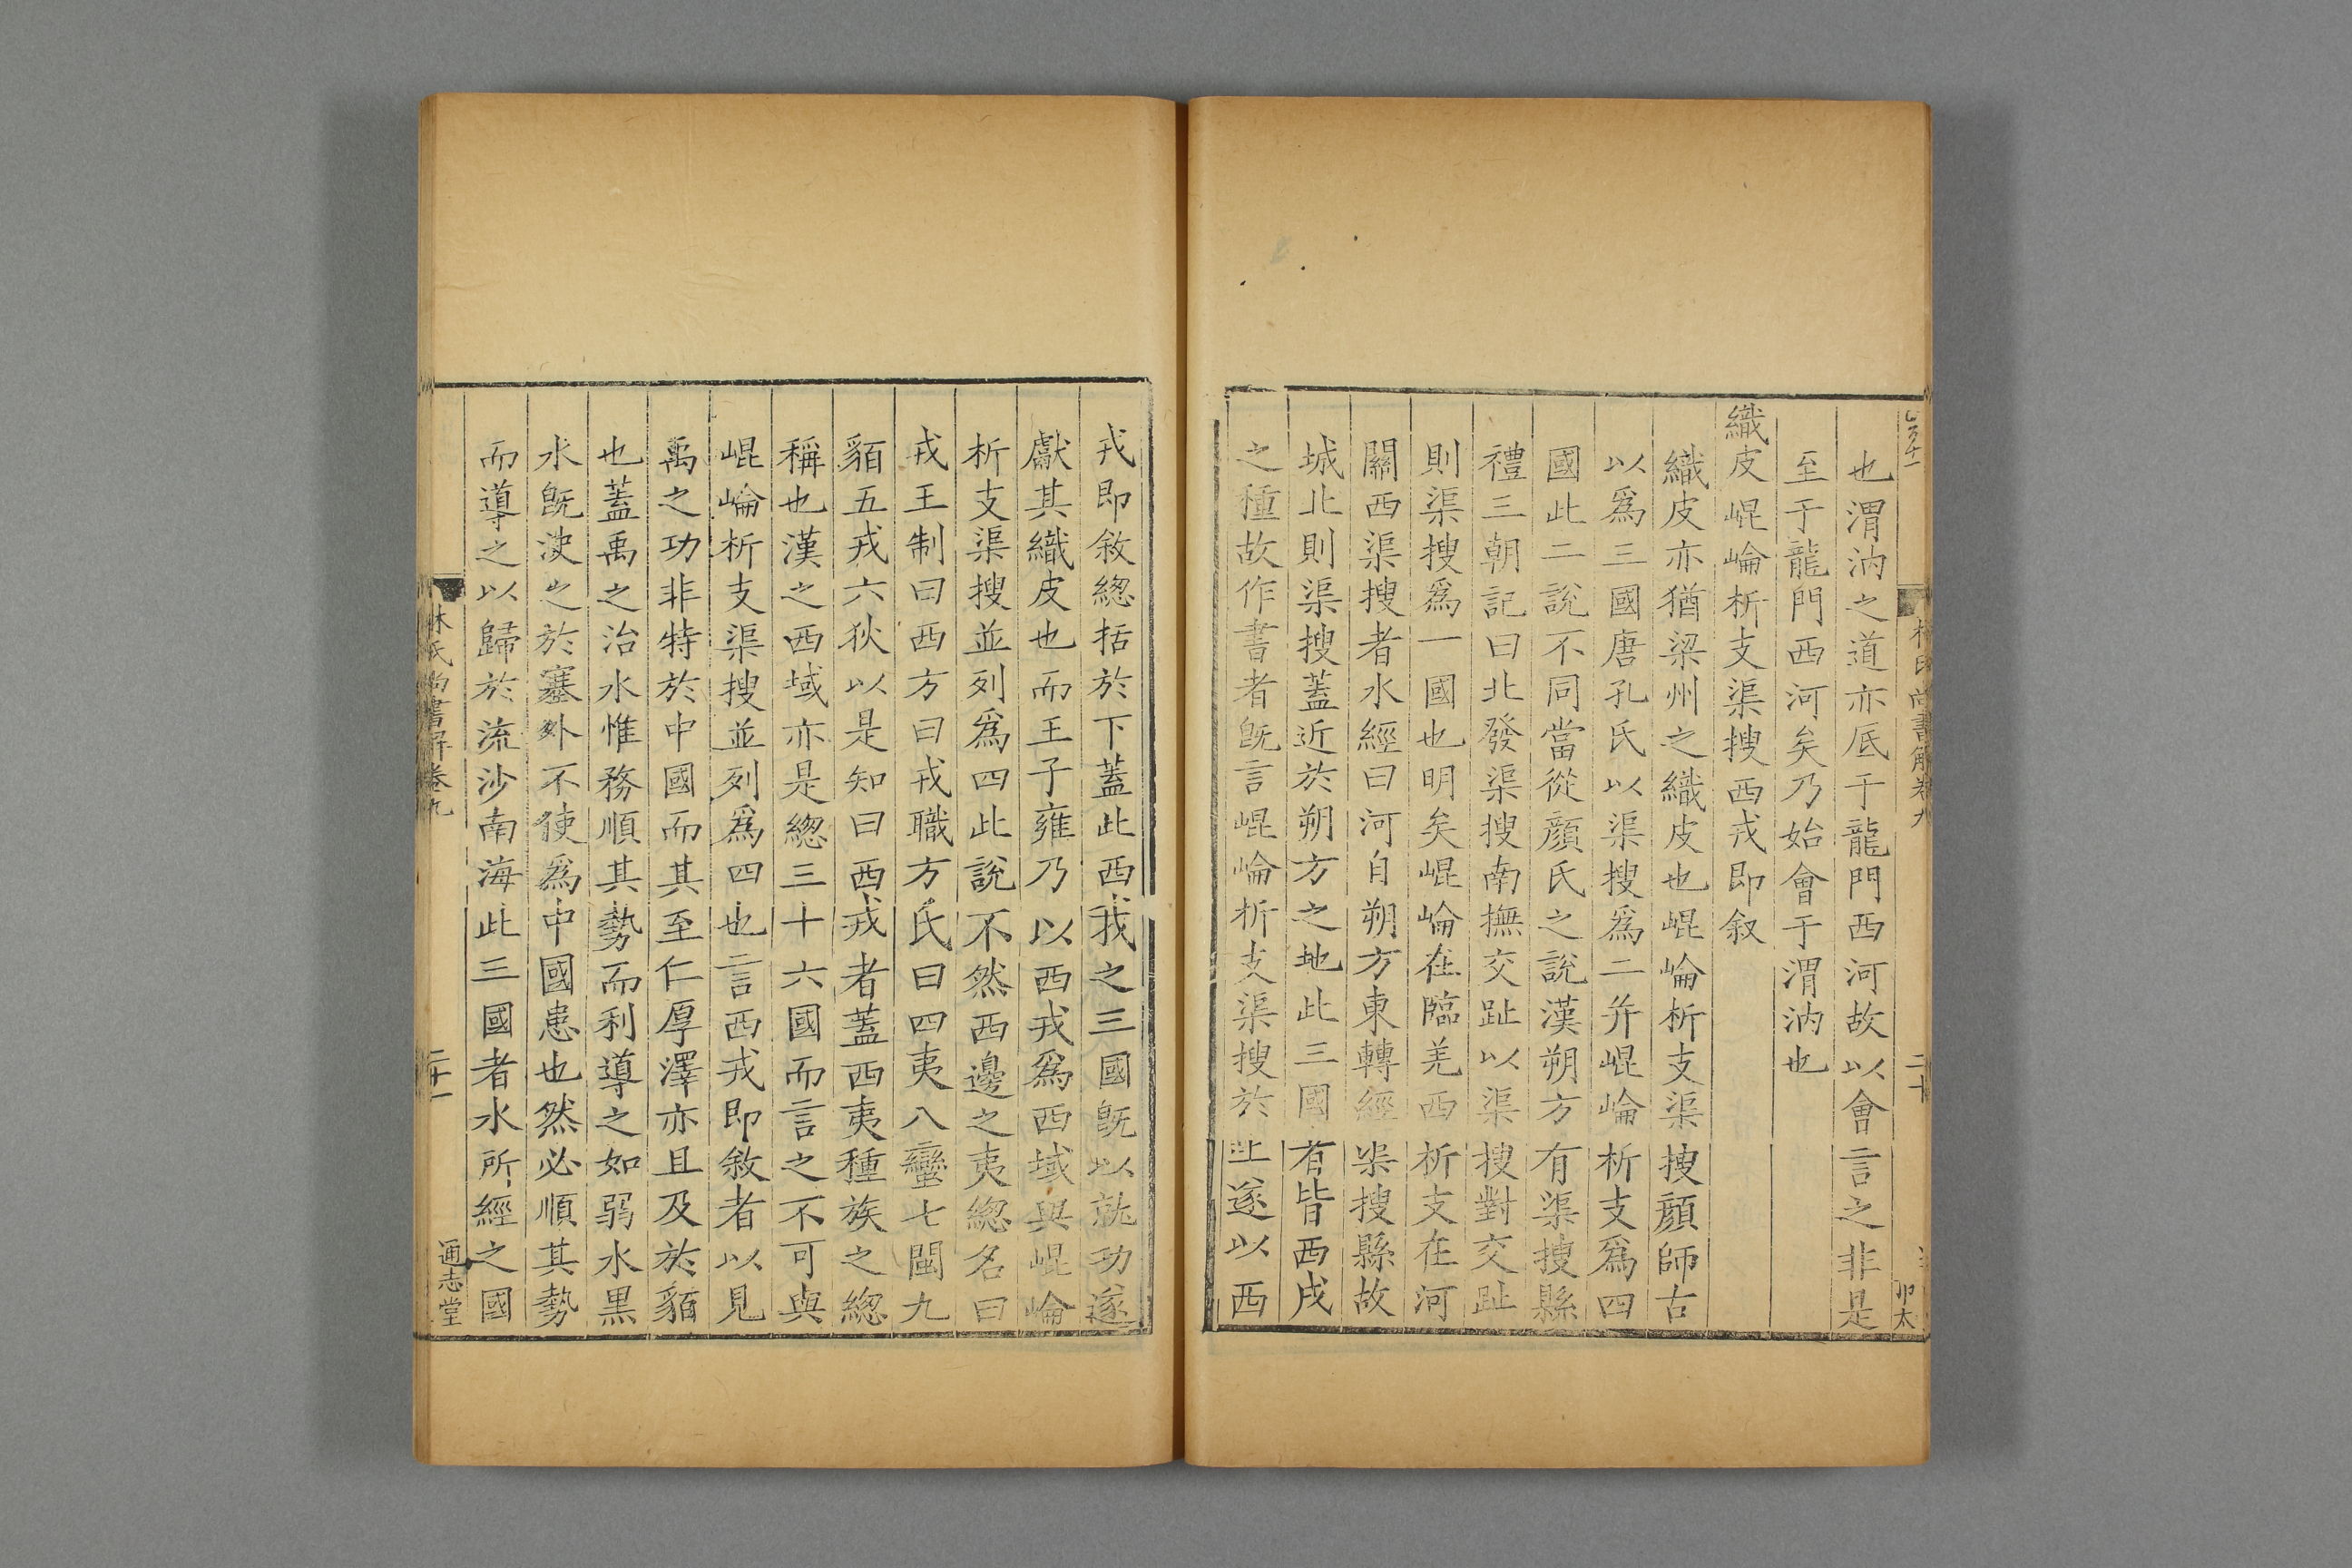 林氏尚書解卷九
二十
也渭汭之道亦厎于龍門西河故以會言之非是
至于龍門西河矣乃始會于渭汭也
織皮崐崘析支渠搜西戎即叙
織皮亦猶梁州之織皮也崐崘析支渠搜顏師古
以爲三國唐孔氏以渠搜爲二并崐崘析支爲四
國此二說不同當從顏氏之說漢朔方有渠搜縣
禮三朝記曰北發渠搜南撫交趾以渠搜對交趾
則渠搜爲一國也明矣崐崘在臨羌西析支在河
關西渠搜者水經曰河自朔方東轉經渠搜縣故
城北則渠搜蓋近於朔方之地此三國有皆西戎
之種故作書者旣言崐崘析支渠搜於上遂以西
戎即敘緫括於下蓋此西戎之三國旣以就功遂
獻其織皮也而王子雍乃以西戎爲西域與崐崘
析支渠搜並列爲四此說不然西邊之夷緫名曰
戎王制曰西方曰戎職方氏曰四夷八蠻七閩九
貊五戎六狄以是知曰西戎者蓋西夷種族之緫
稱也漢之西域亦是緫三十六國而言之不可與
崐崘析支渠搜並列爲四也言西戎即敘者以見
禹之功非特於中國而其至仁厚澤亦且及於貊
也蓋禹之治水惟務順其勢而利導之如弱水黒
水旣決之於塞外不使爲中國患也然必順其勢
而導之以歸於流沙南海此三國者水所經之國
林氏尚書解卷九
二十一
通志堂